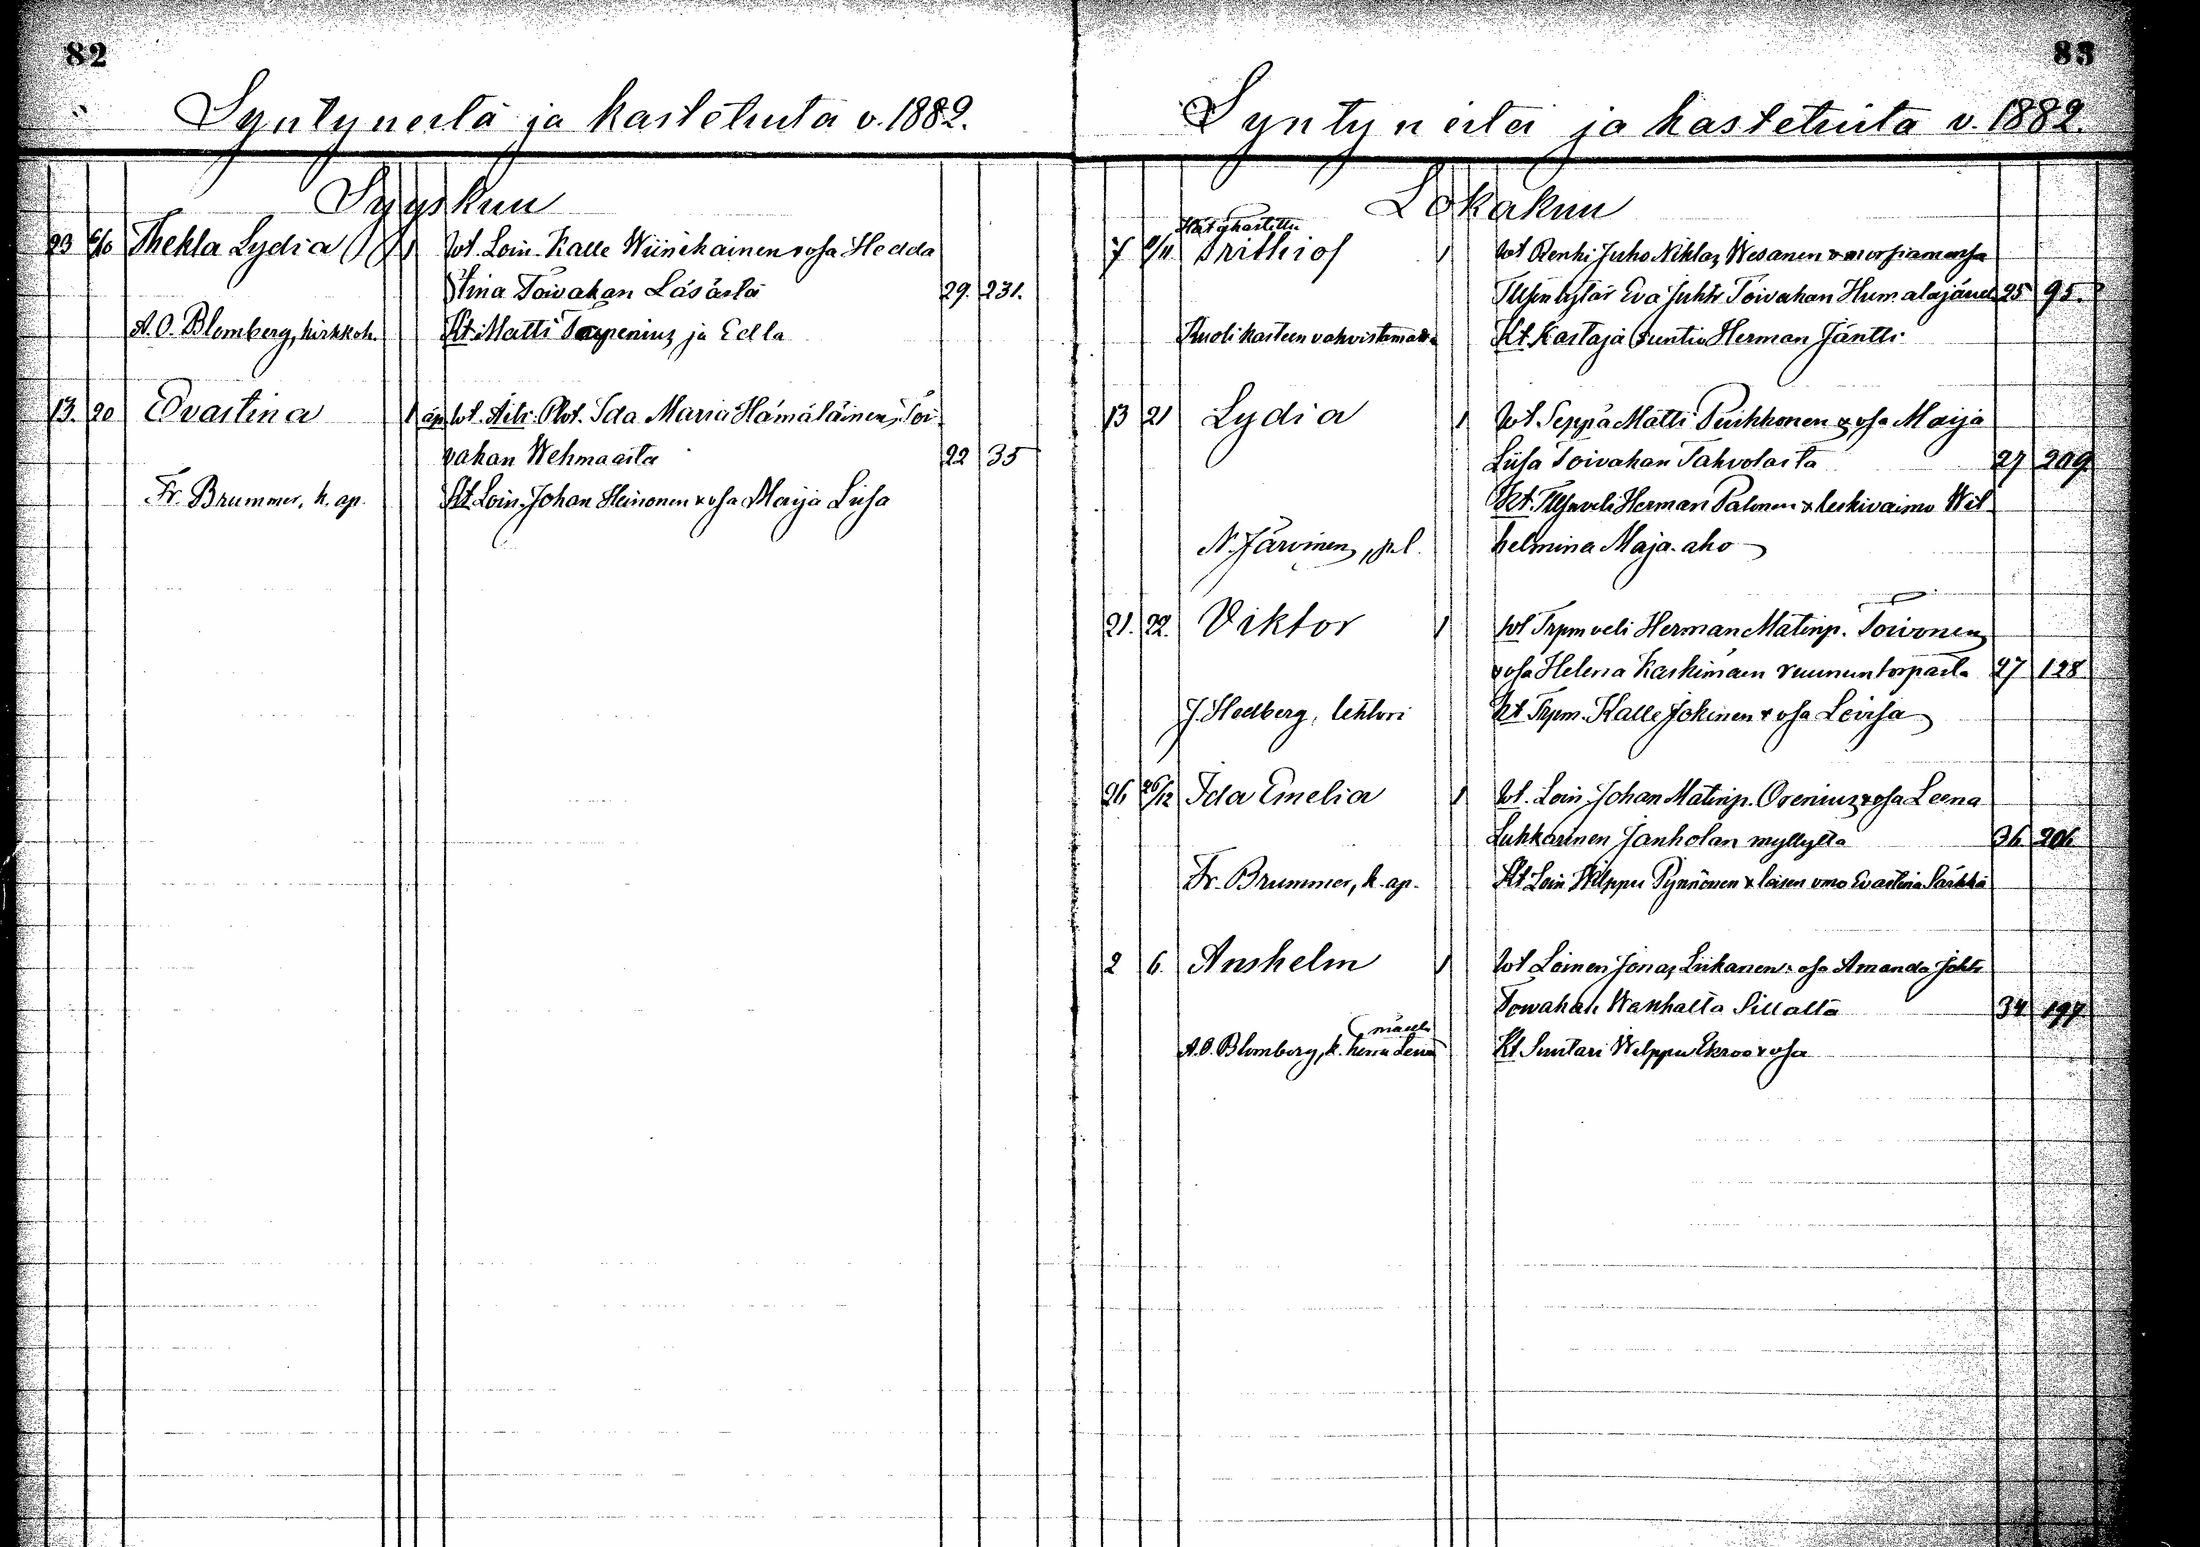 82
Syntyneitä ja kastetuita v. 1882.
Syyskuu
23 6/10 Thekla Lydia 1 Wt. Lois. Kalle Wiinikainen & vsa Hedda
Stina Toivakan Läsästä 29. 231.
A. O. Blomberg, kirkkoh. Kt. Matti Tarpenius ja Edla
13. 20 Evastina 1 äp. Wt. Ailr. Plot. Ida Maria Hämäläinen, Toi-
vakan Wehmaalta 22 35
Fr. Brummer, k. ap. Kt. Lois. Johan Heinonen & vsa Maija Liisa
83
Syntyneitä ja kastetuita v. 1882.
Lokakuu
Hätäkastettu
7 Frithiof 1 Wt Renki Juho Niklas Wesanen & morsiamensa
Eva Juhtr Toivakan Humalajärvel 25 95.
Kuoli kasteen vahvistamatta Kt. Kastaja suntio Herman Jäntti
13 21 Lydia 1 Wt Seppä Matti Puikkonen & vsa Maija
Liisa Toivakan Tahvolasta 27 209
Kt. Herman Palonen & leskivaimo Wil-
N. Järvinen, helmina Maja-aho
21. 22. Viktor 1 Wt Trpm veli Herman Matinp. Toivonen
& vsa Helena Kaskimäen ruununtorpasta 27 128
J. Hedberg, lehtori Kt Trpm. Kalle Jokinen & vsa Lovisa
26 26/12 Ida Emelia 1 Wt. Lois. Johan Matinp. Orenius & vsa Leena
Luhkarinen Janholan myllyltä 36 206
Fr. Brummer, k. ap. Kt Lois Wilppu Pynnönen & loisen vmo Evastina Särkkä
2 6. Anshelm 1 Wt Loinen Jonas Liikanen & vsa Amanda Johtr
Toivakan Wanhalta Sillalta 34 197
A. O. Blomberg, k. Kt. Suutari Wilppu Ekroos & vsa